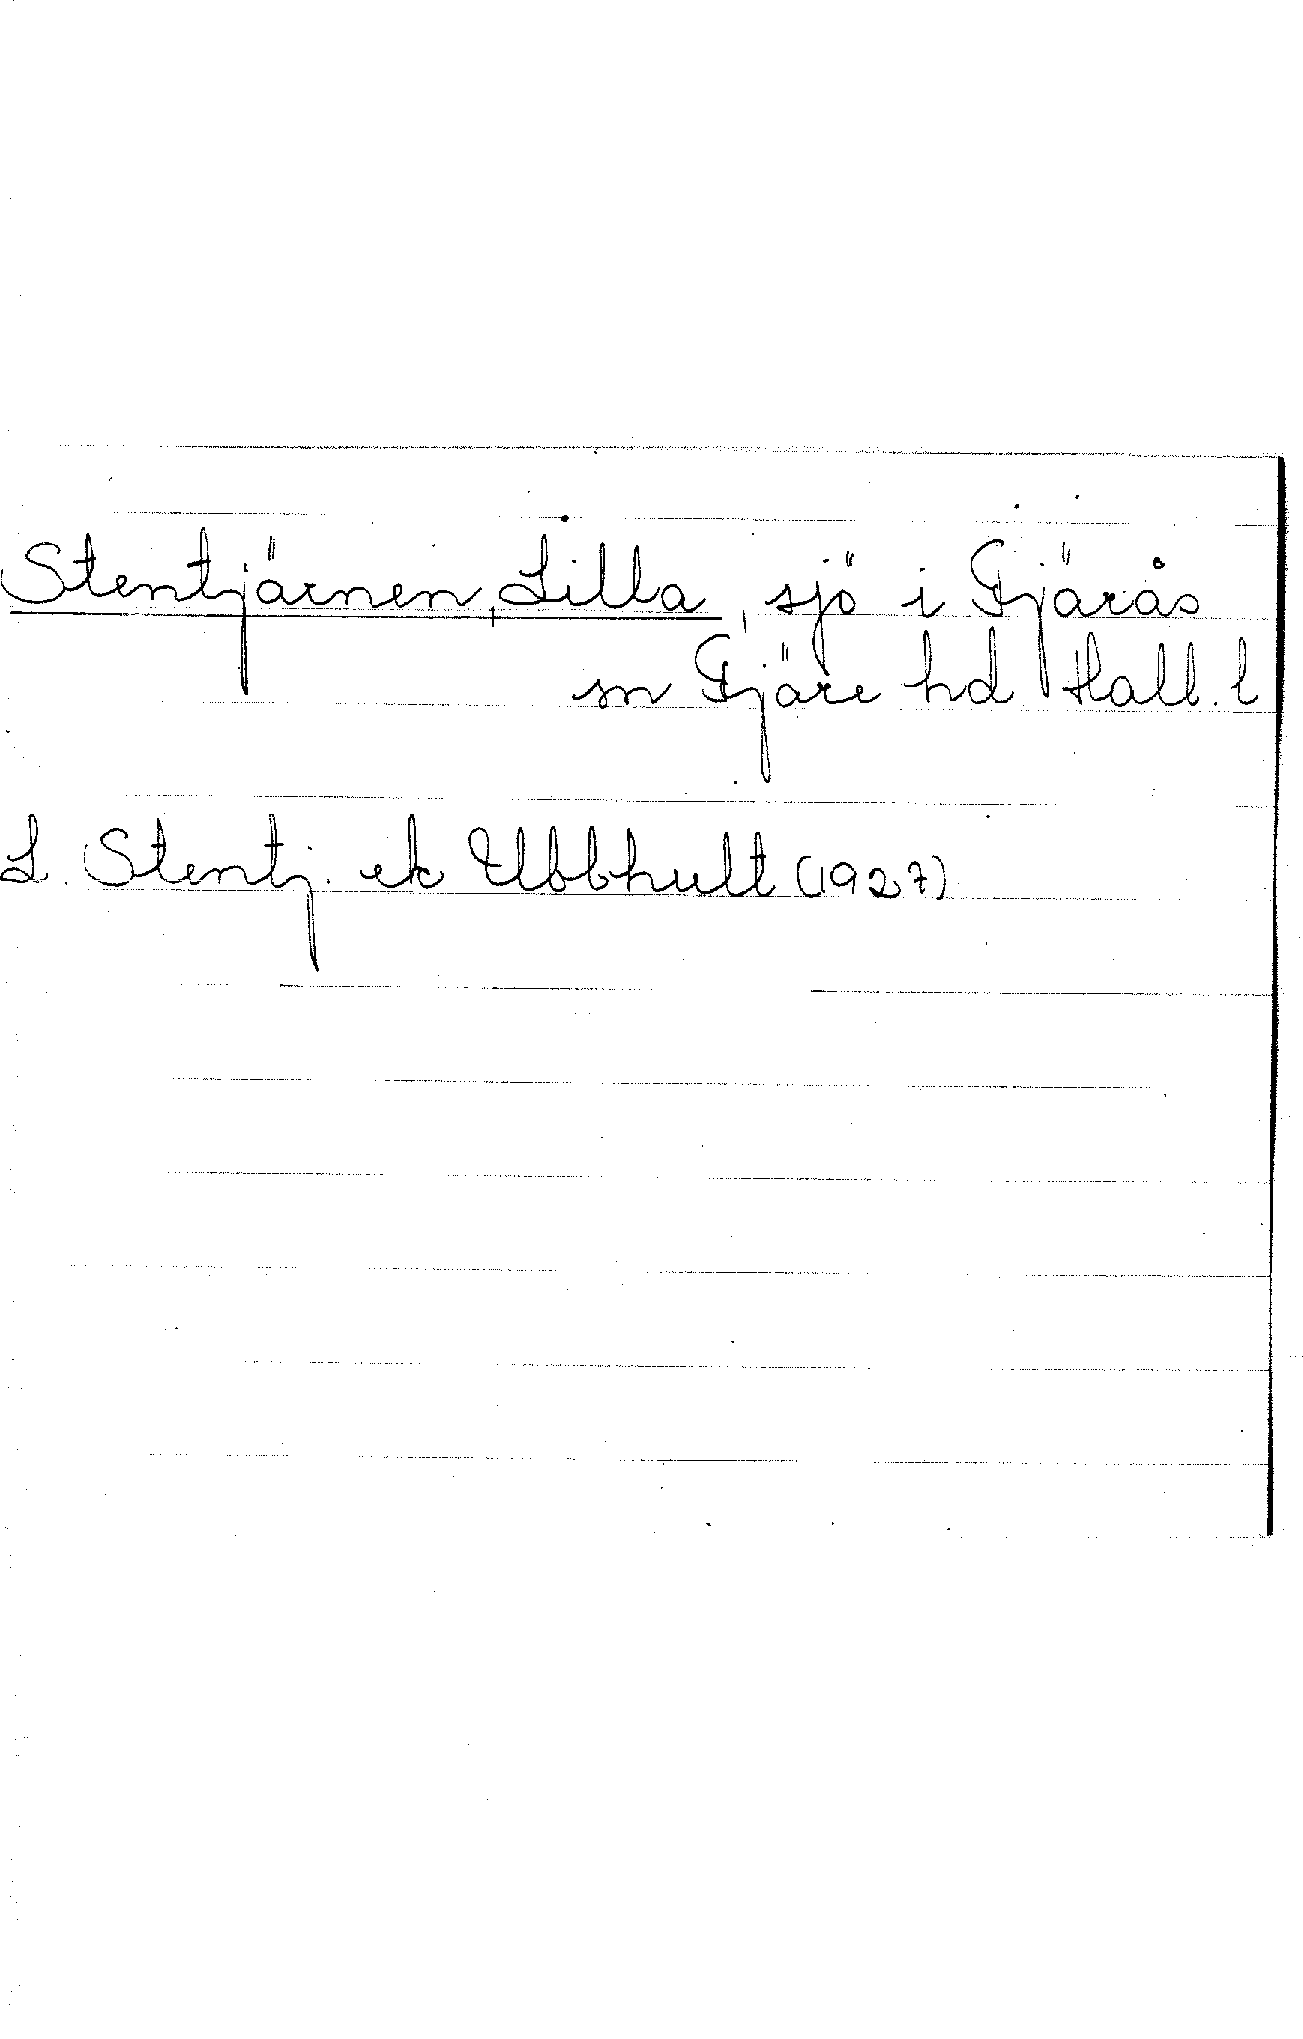 Stentjärnen, Lilla, sjö i Fjärås
sn Fjäre hd Hall. l
L. Stentj. ek Ubbhult (1927)